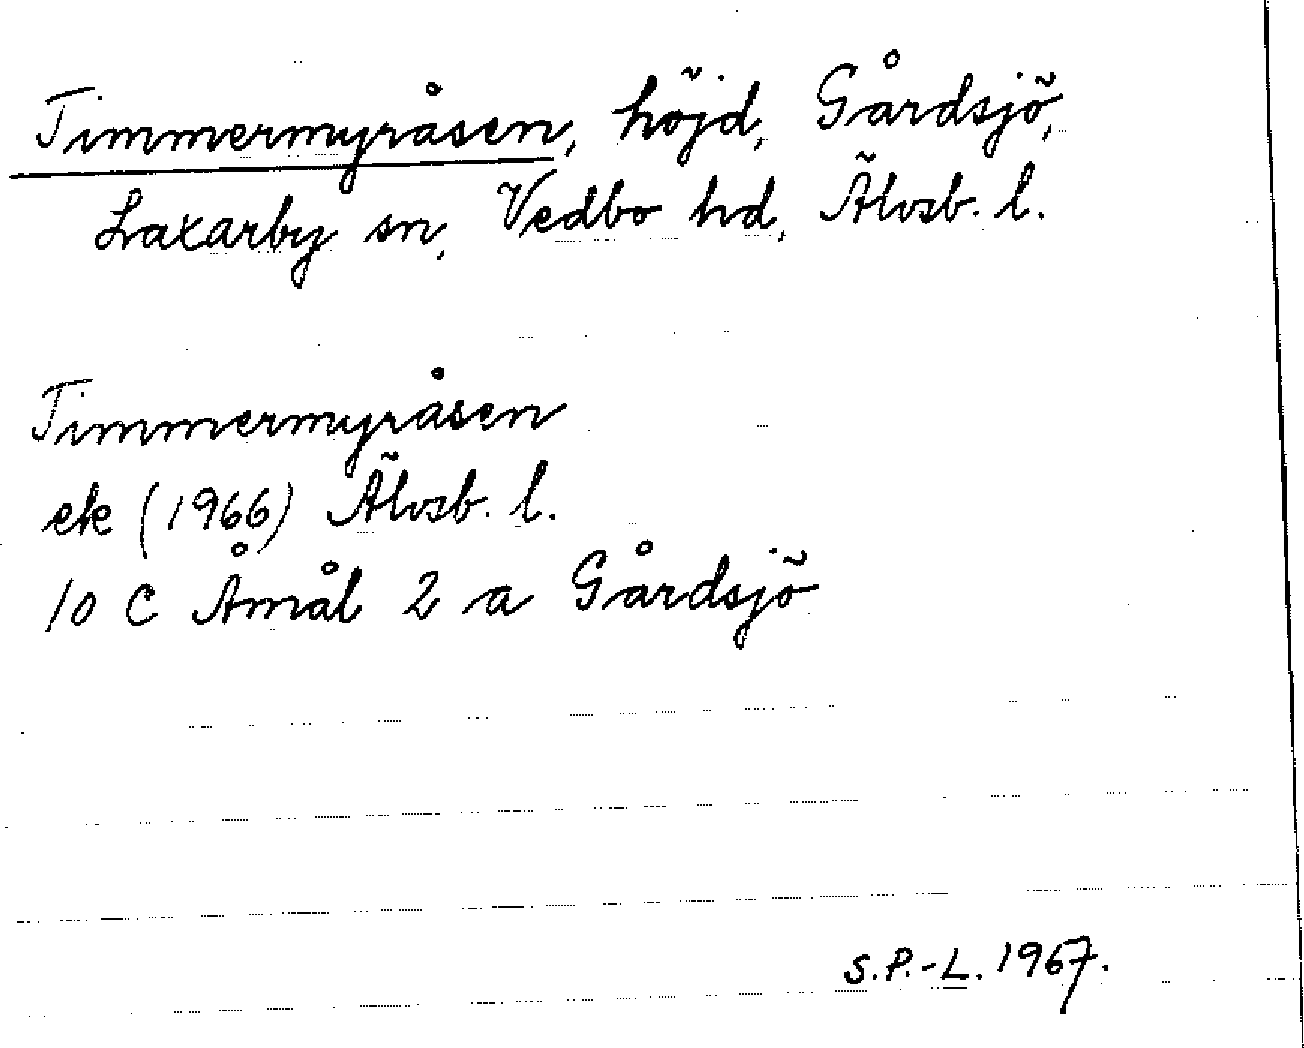 Timmermyråsen, höjd, Gårdsjö,
Laxarby sn, Vedbo hd, Älvsb. l.
Timmermyråsen
ek (1966) Älvsb. l.
10 C Åmål 2 a Gårdsjö
S.P.-L. 1967.